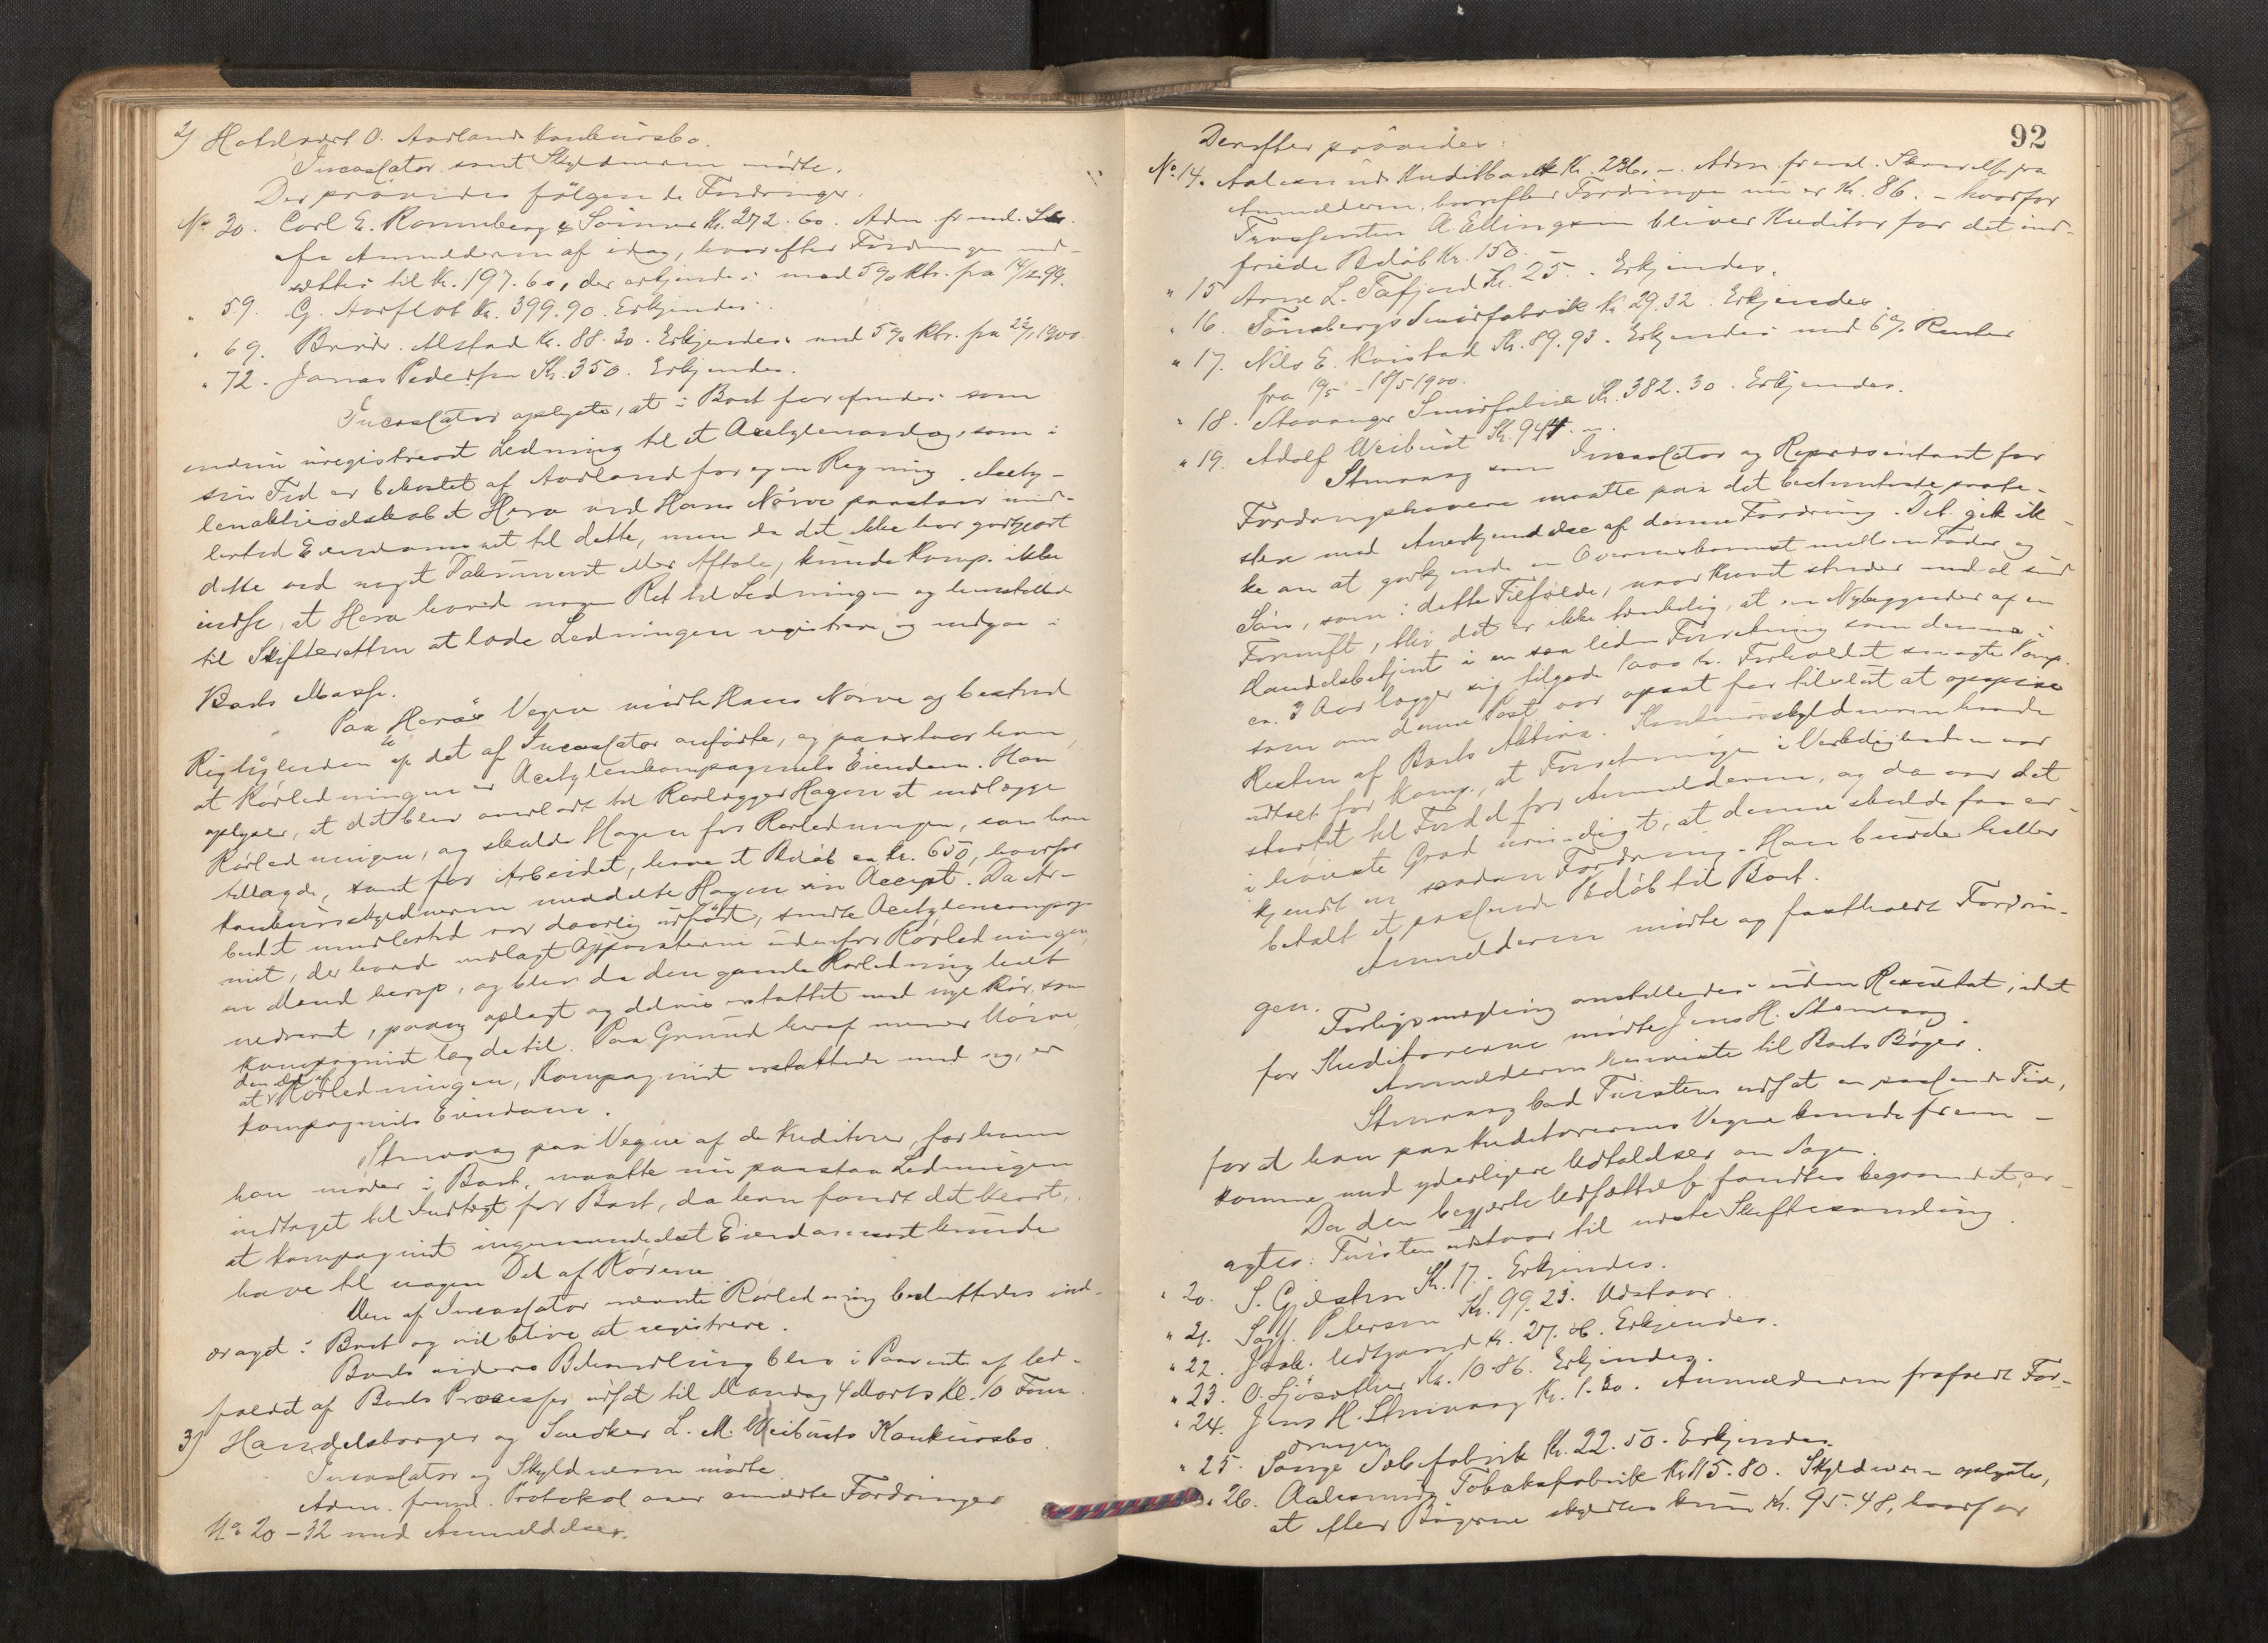 2) Hotelvert O. Aarlands Konkursbo.
Incassator samt Skyldneren mødte.
Der prøvedes følgende Fordringer.
No 30. Carl E. Rønneberg & Sønner Kr. 272.60. Adm freml. Skr.
fra Anmelderen af idag, hvorefter Fordringen ned-
sættes til Kr. 197.60, der erkjendes med 5% Rtr. fra 14/12 99.
" 59. G. Aarflot Kr. 399.90. Erkjendes.
" 69. Brødr. Alstad Kr. 88.30. Erkjendes med 5% Rtr. fra 22/1 1900.
" 72. Jonas Pedersen Kr. 350. Erkjendes.
Incassator oplyste, at i Boet forefindes som
endnu uregistreret Ledning til et Acetylenanlæg, som i
sin Tid er bekostet af Aarland for egen Regning. Acety-
lenaktieselskabet Hera ved Hans Nørve paastaar imid-
lertid Eiendomsret til dette, men da det ikke har godtgjort
dette ved noget Dokument eller Aftale, kunde Komp. ikke
indse, at Hera havde nogen Ret til Ledningen og henstillede
til Skifteretten at lade Ledningen registrere og indgaa i
Boets Masse.
Paa Hera's Vegne mødte Hans Nørve og bestred
Rigtigheden af det af Incassator anførte, og paastaar han,
at Rørledningen er Acetylenkompagniets Eiendom. Han
oplyser, at det blev overladt til Rørlægger Hagen at indlægge
Rørledningen, og skulde Hagen for Rørledningen, som han
tillagde, samt for Arbeidet, have et Beløb ca. kr. 650, hvorfor
Konkursskyldneren meddelte Hagen sin Accept. Da Ar-
beidet imidlertid var daarlig udført, sendte Acetylenkompag-
niet, der havde indlagt Apparaterne udenfor Rørledningen,
en Mand herop, og blev da den gamle Rørledning helt
nedrevet, paany oplagt og delvis erstattet med nye Rør, som
Kompagniet lagde til. Paa Grund heraf mener Nørve,
at den Del af Rørledningen, Kompagniet erstattede med ny, er
Kompagniets Eiendom.
Stenvaag paa Vegne af de Kreditorer, for hvem
han møder i Boet, maatte nu paastaa Ledningen
indtaget til Indtægt for Boet, da han fandt det klart,
at Kompagniet ingensomhelst Eiendomsret kunde
have til nogen Del af Rørene
Den af Incassator nævnte Rørledning besluttedes ind-
draget i Boet og vil blive at registrere.
Boets videre Behandling blev i Paavente af Ud-
faldet af Boets Processer udsat til Mandag 4 Marts Kl. 10 Form.
3) Handelsborger og Snedker L. M. Weibusts Konkursbo.
Incassator og Skyldneren mødte.
Adm. freml. Protokol over anmeldte Fordringer
No 20–32 med Anmeldelser.
92
Derefter prøvedes:
No 14. Aalesunds Kreditbank Kr. 236.–. Adm freml. Skrivelse fra
Anmelderen, hvorefter Fordringen nu er Kr. 86.– hvorfor
Trassenten A. Ellingsen bliver Kreditor for det ind-
friede Beløb Kr. 150.–
" 15 Arne L. Tafjord Kr. 25.–. Erkjendes.
" 16. Tønsbergs Smørfabrik Kr. 29.32. Erkjendes.
" 17. Nils E. Kvistad Kr. 89.93. Erkjendes med 6% Renter
fra 10/5 – 18/5 1900.
" 18. Stavanger Smørfabrik Kr. 382.30. Erkjendes.
" 19. Adolf Weibust Kr. 944.–.
Stenvaag som Incassator og Repræsentant for
Fordringshavere maatte paa det bestemteste prote-
stere mod Anerkjendelse af denne Fordring. Det gik ik-
ke an at godkjende en Overenskomst mellem Fader og
Søn, som i dette Tilfælde, naar Kravet strider mod al sund
Fornuft, thi det er ikke tænkelig, at en Nybegynder af en
Handelsbetjent i en saa liden Forretning som denne i
ca. 3 Aar lægger sig tilgode 1000 kr. Forholdet smagte Komp.
som om denne Post var opsat for tilslut at opspise
Resten af Boets Aktiva. Konkursskyldneren havde
udtalt for Komp., at Forretningen i Virkeligheden var
startet til Fordel for Anmelderen, og da var det
i høieste Grad urimeligt, at denne skulde faa er-
kjendt en saadan Fordring. Han burde heller
betalt et passende Beløb til Boet.
Anmelderen mødte og fastholdt Fordrin-
gen.
Forligsmægling anstilledes uden Resultat, idet
for Kreditorerne mødte Jens H. Stenvaag.
Anmelderen henviste til Boets Bøger.
Stenvaag bad Tvisten udsat en passende Tid,
for at han paa Kreditorernes Vegne kunde frem-
komme med yderligere Udtalelser om Sagen.
Da den begjærte Udsættelse fandtes begrundet, er-
agtes: Tvisten udstaar til næste Skiftesamling.
" 20. S. Gjelsten Kr. 17.–. Erkjendes.
" 21. Petersen Kr. 99.23. Udstaar.
" 22. Udtgaard Kr. 27.06. Erkjendes.
" 23. O. Sjøsæther Kr. 10.86. Erkjendes.
" 24. Jens H. Stenvaag Kr. 1.30. Anmelderen frafaldt For-
dringen
" 25. Sæbefabrik Kr. 22.50. Erkjendes.
" 26. Aalesunds Tobaksfabrik Kr 115.80. Skyldneren oplyste,
at efter Bøgerne skyldtes kun Kr. 95.48, hvorfor